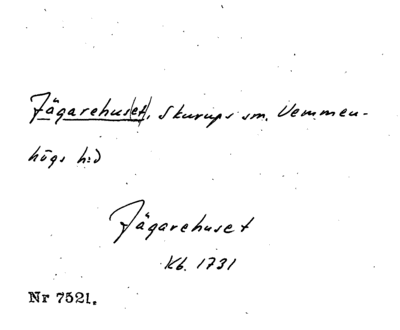 Jägarehus(et), Skurups sn. Vemmen-
högs h:d
Jägarehuset
Kb. 1731
Nr 7521.